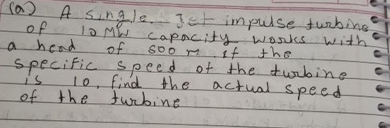 (a) A single Jet impulse turbine
of 10 MW capacity works with
a head of 500 m If the
specific speed of the turbine
is 10, find the actual speed
of the turbine